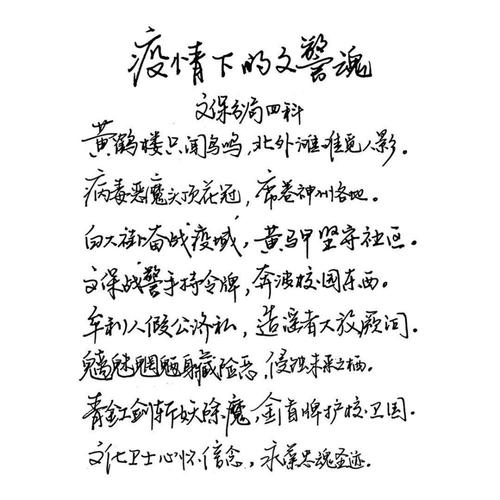 疫情下的文警魂
文保分局四科
黄鹤楼只闻鸟鸣，北外滩难觅人影。
病毒恶魔头顶花冠，席卷神州各地。
白大褂奋战疫域，黄马甲坚守社区。
文保战警手持令牌，奔波校园东西。
牟利人假公济私，造谣者大放厥词。
魑魅魍魉身藏险恶，侵蚀未来之栖。
青釭剑斩妖除魔，金盾牌护校卫园。
文化卫士心怀信念，承葆忠魂圣迹。